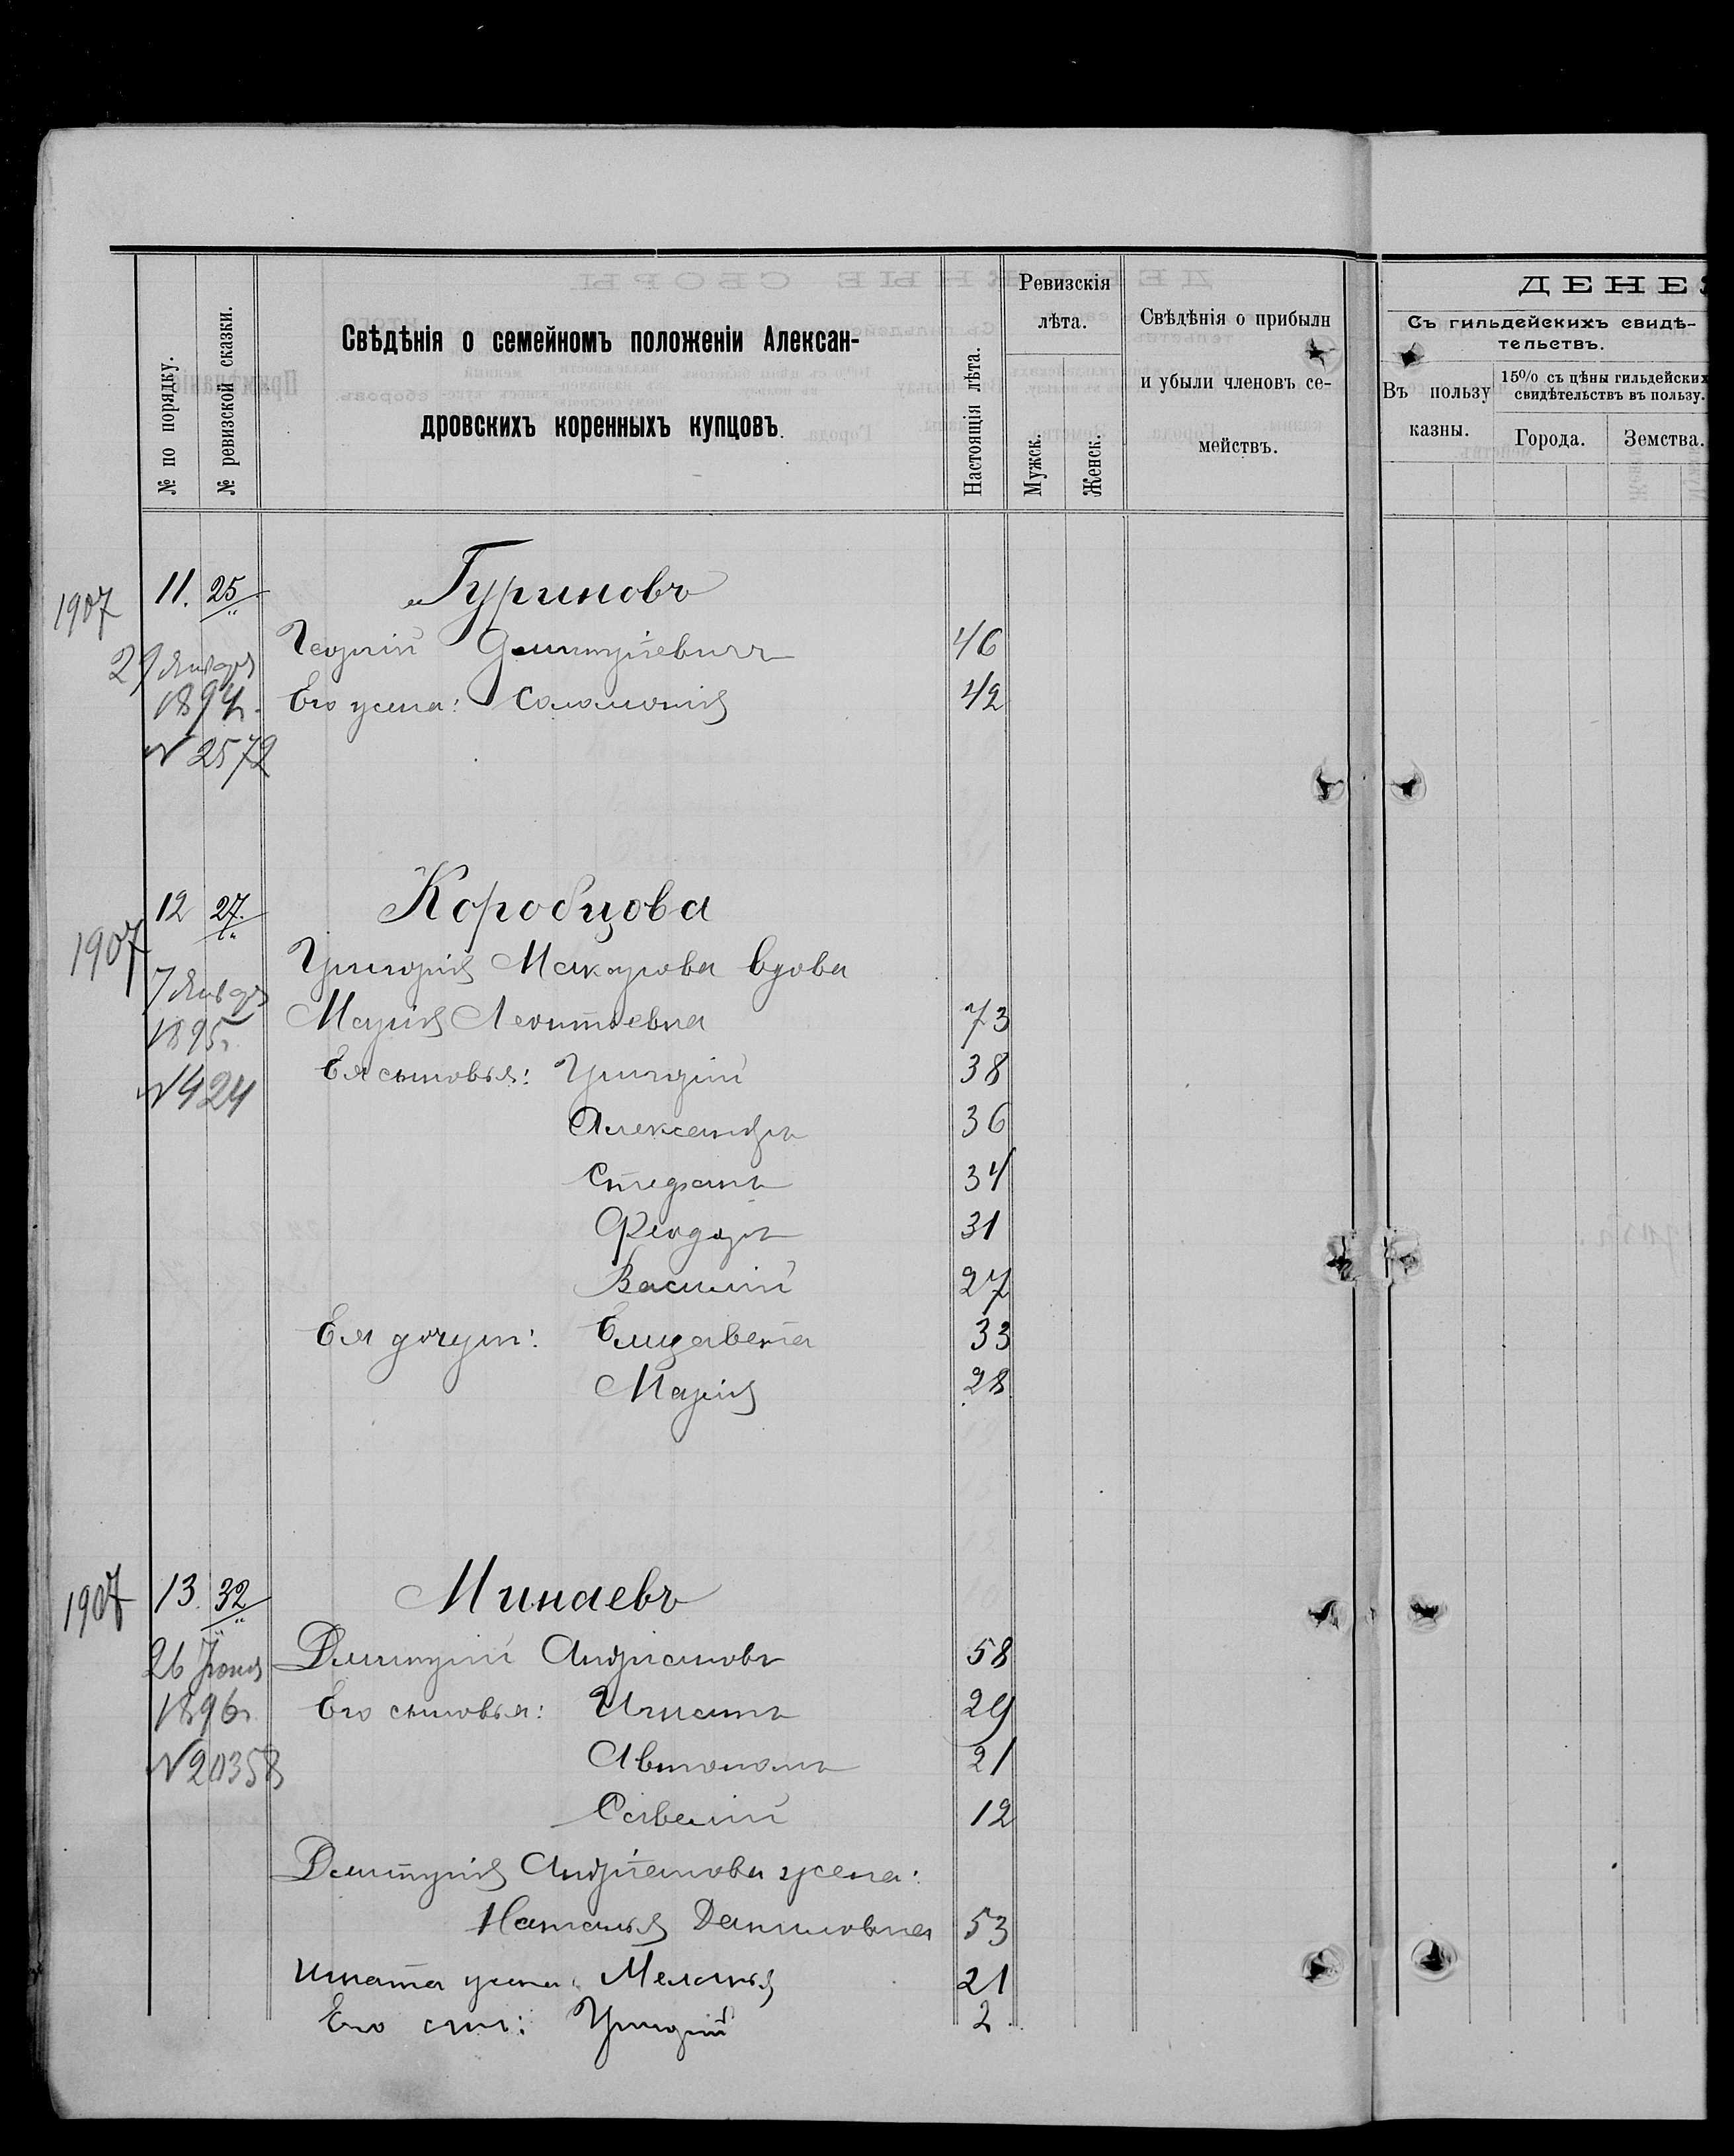 № по порядку.
№ ревизской сказки.
Свѣдѣнія о семейномъ положеніи Алексан-
дровскихъ коренныхъ купцовъ.
Настоящія лѣта.
Ревизскія
лѣта.
Мужск.
Женск.
Свѣдѣнія о прибыли
и убыли членовъ се-
мействъ.
ДЕНЕЖ
Съ гильдейскихъ свидѣ-
тельствъ.
Въ пользу
казны.
15% съ цѣны гильдейских
свидѣтельствъ въ пользу.
Города.
Земства.
1907 11. 25 Гуриновъ
29 Января Георгій Дмитріевичъ 46
1894 г. Его жена: Соломонія 42
№ 2572
1907 12 27. Коробцова
Григорія Макарова вдова
7 Января
1895 г. Марія Леонтьевна 73
№ 424 Ея сыновья: Григорій 38
Александръ 36
Стефанъ 34
Феодоръ 31
Василій 27
Ея дочери: Елизавета 33
Марія 28
1907 13. 32 Минаевъ
26 Іюня Дмитрій Андріановъ 58
1896 г. Его сыновья: Игнатъ 29
№ 20358 Автономъ 21
Савелій 12
Дмитрія Андріанова жена:
Наталья Даниловна 53
Игната жена: Меланья 21
Его сынъ: Григорій 2